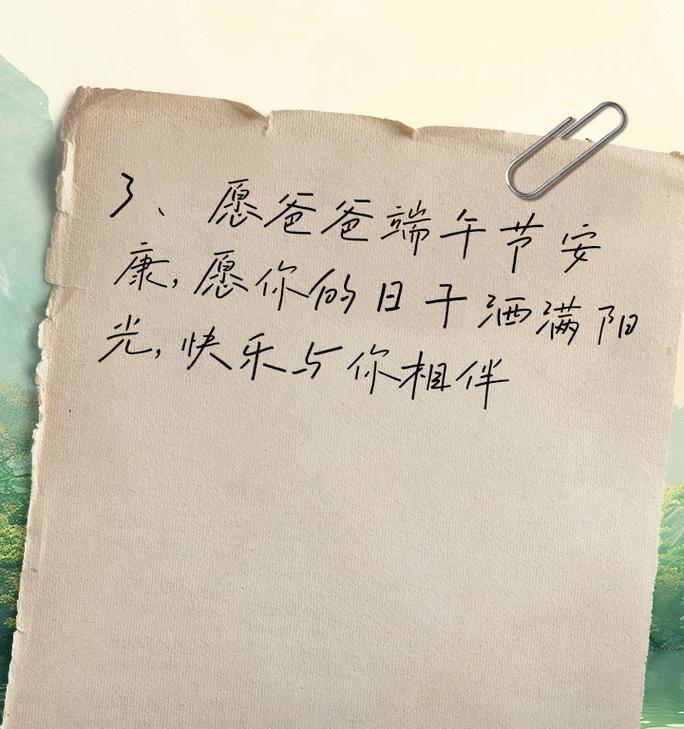 3、愿爸爸端午节安
康,愿你的日子洒满阳
光,快乐与你相伴